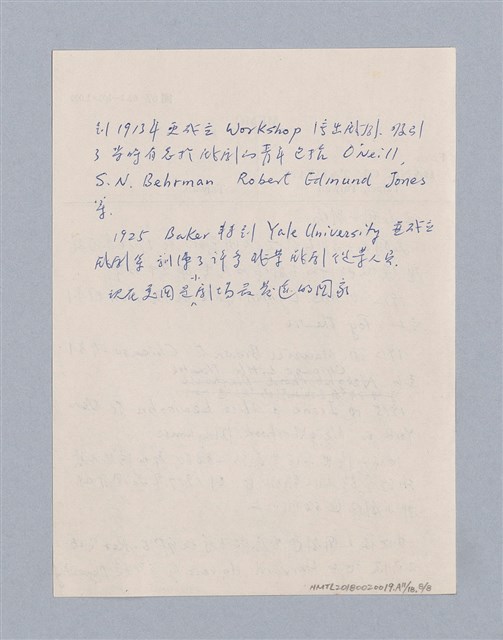 到1913年更成立 Workshop 演出戲劇. 吸引
了當時有志於戲劇的青年包括 O'Neill,
S.N. Behrman Robert Edmund Jones
等.
1925 Baker 轉到 Yale University 並成立
戲劇系 訓練了許多 職業戲劇從業人員.
現在美國是小劇場最發達的國家
NMTL20180020019.A